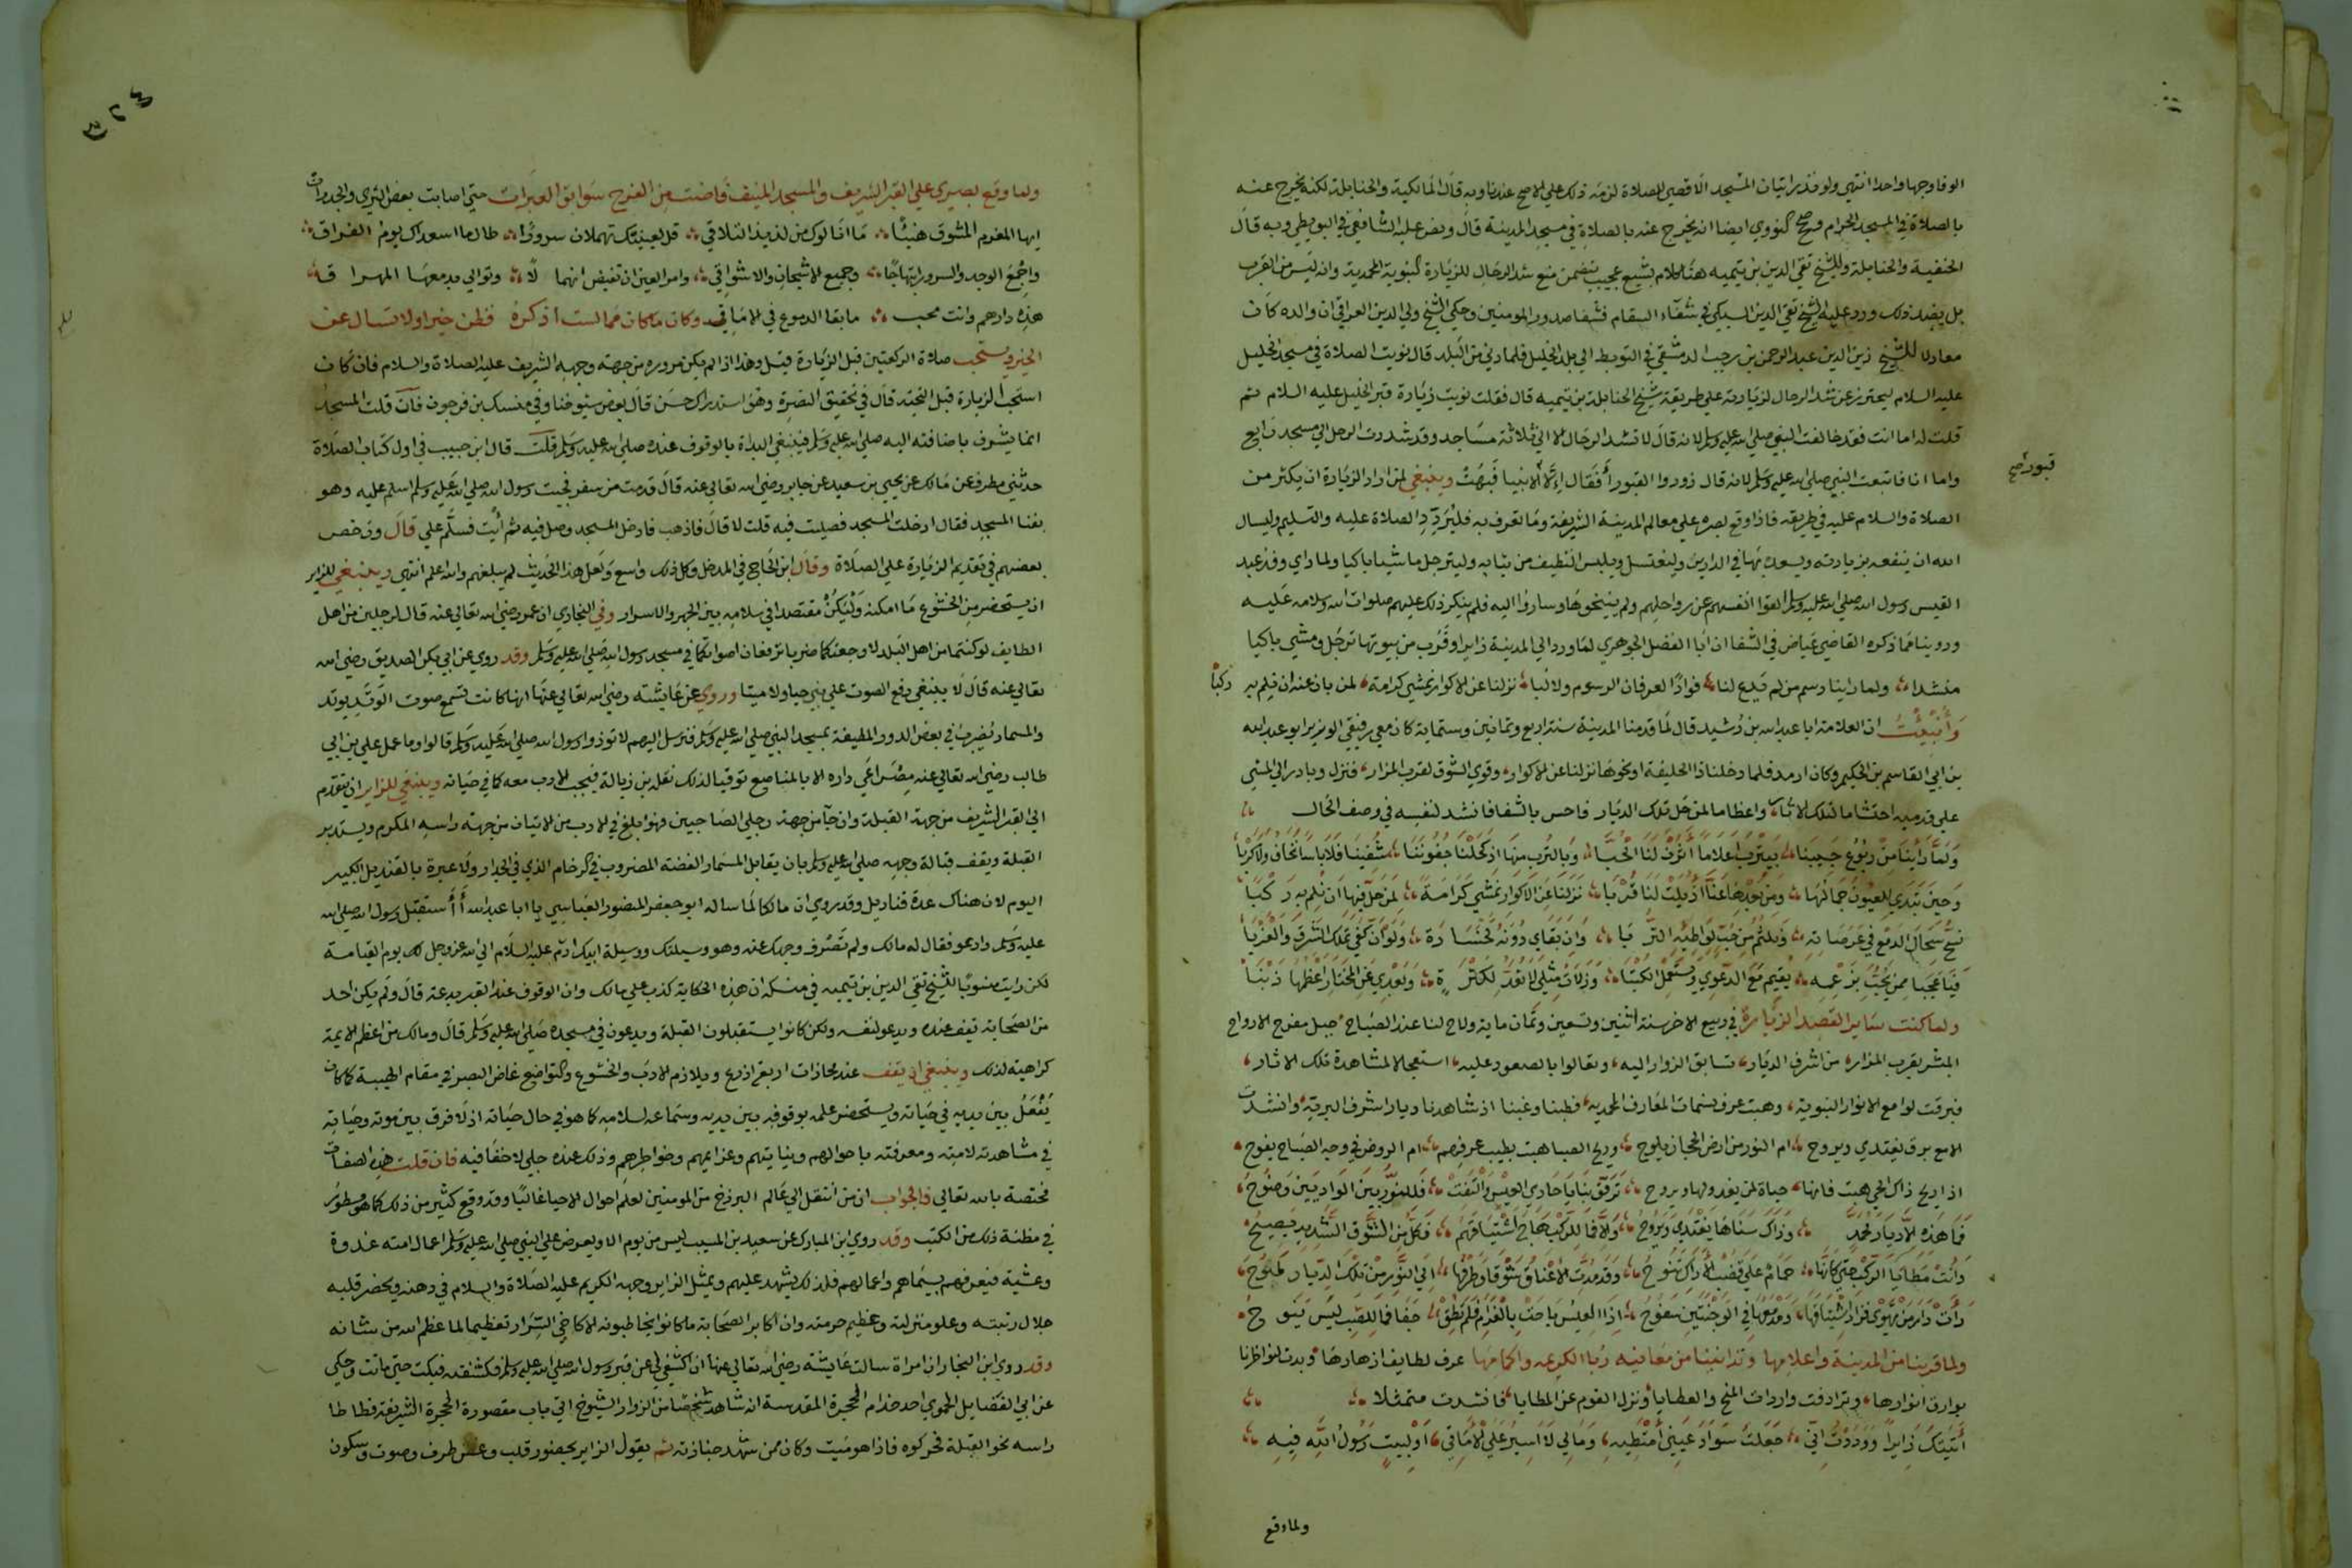 الوفا وجها واحدا انتهى ولو نذر اتيان المسجد الاقصى للصلاة لزمه ذلك على الاصح عندنا وبه قال المالكية والحنابلة لكنه يخرج عنه
بالصلاة في المسجد الحرام وصحح النووي ايضا انه يخرج عنه بالصلاة في مسجد المدينة قال ونص عليه الشافعي في البويطي وبه قال
الحنفية والحنابلة وللشيخ تقي الدين بن تيميه هنا كلام بشيع عجيب يتضمن منع شد الرحال للزيارة النبوية المحمدية وانه ليس من القرب
بل يضد ذلك ورد عليه الشيخ تقي الدين السبكي في شفاء السقام فشفا صدور المومنين وحكي الشيخ ولي الدين العراقي ان والده كان
معادلا للشيخ زين الدين عبد الرحمن بن رجب الدمشقي في التوجه الى بلد الخليل فلما دنى من البلد قال نويت الصلاة في مسجد الخليل
عليه السلام ليحترز عن شد الرحال لزيارته على طريقة شيخ الحنابلة بن تيميه قال فقلت نويت زيارة قبر الخليل عليه السلام ثم
قلت له اما انت فقد خالفت النبي صلى الله عليه وسلم لانه قال لا تشد الرحال الا الى ثلاثة مساجد وقد شددت الرحل الى مسجد رابع
واما انا فاتبعت النبي صلى الله عليه وسلم لانه قال زوروا القبور أفقال إلا الانبيا فبهت وينبغي لمن اراد الزيارة ان يكثر من
قبور صح
الصلاة والسلام عليه في طريقه فاذا وقع بصره على معالم المدينة الشريفة وما تعرف به فليردد الصلاة عليه والتسليم وليسال
الله ان ينفعه بزيارته ويسعده بها في الدارين وليغتسل ويلبس النظيف من ثيابه وليترجل ماشيا باكيا ولما راي وفد عبد
القيس رسول الله صلى الله عليه وسلم القوا انفسهم عن رواحلهم ولم ينيخوها وساروا اليه فلم ينكر ذلك عليهم صلوات الله وسلامه عليه
وروينا مما ذكره القاضي عياض في الشفا ان ابا الفضل الجوهري لما ورد الى المدينة زايرا وقرب من بيوتها ترجل ومشى باكيا
منشدا ولما راينا رسم من لم يدع لنا فوادا لعرفان الرسوم ولا لبا نزلنا عن الاكوار نمشي كرامة لمن بان عنه ان نلم به ركبا
وأنبئت ان العلامة ابا عبد الله بن رشيد قال لما قدمنا المدينة سنة اربع وثمانين وستماية كان معي رفيقي الوزير ابو عبد الله
بن ابي القاسم بن الحكيم وكان ارمد فلما دخلنا ذا الحليفة او نحوها نزلنا عن الاكوار وقوي الشوق لقرب المزار فنزل وبادر الى المشي
على قدميه احتشاما لتلك الاثار واعظاما لمن حل تلك الديار فاحس بالشفا فانشد لنفسه في وصف الحال
ولما راينا من ربوع حبيبنا بيثرب اعلاما اثرن لنا الحبا وبالترب منها اذ كحلنا جفوننا شفينا فلا باسا نخاف ولا كربا
وحين تبدى للعيون جمالها ومن بعدها عنا اديلت لنا قربا نزلنا عن الاكوار نمشي كرامة لمن حل فيها ان نلم به ركبا
نسح سجال الدمع في عرصاته ونلثم من حب لواطيه التربا وان بقاي دونه لخسارة ولو ان كفي تملك الشرق والغربا
فيا عجبا ممن يحب بزعمه يقيم مع الدعوى ويستعمل الكتبا وزلات مثلي لا تعد لكثرة وبعدي عن المختار اعظمها ذنبا
ولما كنت ساير القصد الزيارة في ربيع الاخر سنة اثنين وتسعين وثمان ماية ولاح لنا عند الصباح جبل مفرح الارواح
المبشر بقرب المزار من اشرف الديار تسابق الزوار اليه وتعالوا بالصعود عليه استعجالا لمشاهدة تلك الاثار
فبرقت لوامع الانوار النبوية وهبت عرف نسمات المعارف المحمدية فطبنا وغبنا اذ شاهدنا ديار اشرف البرية وانشدت
الامع برق يغتدي ويروح ام النور من ارض الحجاز يلوح وريح الصبا هبت بطيب عرفهم ام الروض في وجه الصباح يفوح
اذا ريح ذاك الحي هبت فانها حياة لمن يغدو لها ويروح ترفق بنا يا حادي العيس والتفت فللنور بين الواديين وضوح
فما هذه الا ديار محمد وذاك سناها يغتدي ويروح والا فما للركب هاج اشتياقهم فكل من الشوق الشديد يصيح
وانت مطايا الركب حتى كانها حمام على قضب الاراك تنوح وقد مدت الاعناق شوقا وطرفها الى النور من تلك الديار لموح
رات دار من تهوى فزاد اشتياقها ومدمعها في الوجنتين سفوح اذا العيس باحت بالغرام فلم تطق جفا فما للصب ليس ينوح
ولما قربنا من المدينة واعلامها وتدانينا من معانيه ربا الكريمه واكامها عرف لطايف ازهارها وبدت لنواظرنا
بوارق انوارها وترادفت واردات المنح والعطايا ونزل القوم عن المطايا فانشدت متمثلا
أتيتك زايرا وودت اني جعلت سواد عيني امتطيه ومالي لا اسير على الاماقي الى بيت رسول الله فيه
ولما وقع
٤٢٣
ولما وقع بصري على القبر الشريف والمسجد المنيف فاضت من الفرح سوابق العبرات حتى اصابت بعض الثرى والجدرات
ايها المغرم المشوق هنيئا ما انالوك من لذيذ التلاقي قل لعينيك تهملان سرورا طالما اسعداك يوم الفراق
واجمع الوجد والسرور ابتهاجا وجميع الاشجان والاشواقي وامر العين ان تفيض انهمالا وتوالي بدمعها المهراقه
هذه دارهم وانت محب ما بقا الدموع في الاماقي وكان ما كان مما لست أذكره فظن خيرا ولا تسال عن
الخبر ويستحب صلاة الركعتين قبل الزيارة قيل وهذا اذا لم يكن مروره من جهته وجهه الشريف عليه الصلاة والسلام فان كان
استحب الزيارة قبل التحية قال في تحقيق النصرة وهو استدراك حسن قال بعض شيوخنا وفي منسك بن فرحون فان قلت المسجد
انما يشرف باضافته اليه صلى الله عليه وسلم فينبغي البداة بالوقوف عنده صلى الله عليه وسلم قلت قال ابن حبيب في اول كتاب الصلاة
حدثني مطرف عن مالك عن يحيى بن سعيد عن جابر رضي الله تعالى عنه قال قدمت من سفر فجيت رسول الله صلى الله عليه وسلم اسلم عليه وهو
بفنا المسجد فقال ادخلت المسجد فصليت فيه قلت لا قال فاذهب فادخل المسجد وصل فيه ثم أيت فسلم علي قال ورخص
بعضهم في تقديم الزيارة على الصلاة وقال ابن الحاج في المدخل وكل ذلك واسع ولعل هذا الحديث لم يبلغهم والله اعلم انتهى وينبغي للزاير
ان يستحضر من الخشوع ما امكنه وليكن مقتصدا في سلامه بين الجهر والاسرار وفي البخاري ان عمر رضي الله تعالى عنه قال لرجلين من اهل
الطايف لو كنتما من اهل البلد لاوجعتكما ضربا ترفعان اصواتكما في مسجد رسول الله صلى الله عليه وسلم وقد روي عن ابي بكر الصديق رضي الله
تعالى عنه قال لا ينبغي رفع الصوت على نبي حيا ولا ميتا وروي عن عايشه رضي الله تعالى عنها انها كانت تسمع صوت الوتد يوتد
والمسمار يضرب في بعض الدور المطيفة بمسجد النبي صلى الله عليه وسلم فترسل اليهم لا توذوا رسول الله صلى الله عليه وسلم قالوا وما عمل علي بن ابي
طالب رضي الله تعالى عنه مصراعي داره الا بالمناصع توقيا لذلك نقله بن زبالة فيجب الادب معه كما في حياته وينبغي للزاير ان يتقدم
الى القبر الشريف من جهة القبلة وان جا من جهة رجلي الصاحبين فهو ابلغ في الادب من الاتيان من جهته راسه المكرم ويستدبر
القبلة ويقف قبالة وجهه صلى الله عليه وسلم بان يقابل المسمار الفضه المضروب في الرخام الذي في الجدار ولا عبرة بالقنديل الكبير
اليوم لان هناك عدة قناديل وقد روي ان مالكا لما ساله ابو جعفر المنصور العباسي يا ابا عبد الله أأستقبل رسول الله صلى الله
عليه وسلم وادعو فقال له مالك ولم تصرف وجهك عنه وهو وسيلتك ووسيلة ابيك ادم عليه السلام الى الله عز وجل لك يوم القيامة
لكن رايت منسوبا للشيخ تقي الدين بن تيميه في منسكه ان هذه الحكاية كذب على مالك وان الوقوف عند القبر بدعة قال ولم يكن احد
من الصحابة تقف عنده ويدعو لنفسه ولكن كانوا يستقبلون القبلة ويدعون في مسجده صلى الله عليه وسلم قال ومالك من اعظم الايمة
كراهية لذلك وينبغي ان يقف عند محاذات اربع اذرع ويلازم الادب والخشوع والتواضع غاض البصر في مقام الهيبة كما كان
يفعل بين يديه في حياته ويستحضر علمه بوقوفه بين يديه وسماعه لسلامه كما هو في حال حياته اذ لا فرق بين موته وحياته
في مشاهدته لامته ومعرفته باحوالهم ونياتهم وعزايمهم وخواطرهم وذلك عنده جلي لا خفا فيه فان قلت هذه الصفات
مختصة بالله تعالى فالجواب ان من انتقل الى عالم البرزخ من المومنين لعلم احوال الاحيا غالبا وقد وقع كثير من ذلك كما هو مسطور
في مظنة ذلك من الكتب وقد روي ابن المبارك عن سعيد بن المسيب ليس من يوم الا ويعرض على النبي صلى الله عليه وسلم اعمال امته غدوة
وعشية فيعرفهم بسيماهم واعمالهم فلذلك يشهد عليهم ويمثل الزاير وجهه الكريم عليه الصلاة والسلام في ذهنه ويحضر قلبه
جلال رتبته وعلو منزلته وعظيم حرمته وان اكابر الصحابة ما كانوا يخاطبونه الا كاخي السرار تعظيما لما عظم الله من شانه
وقد روي ابن النجار ان امراة سالت عايشه رضي الله تعالى عنها ان اكشفي لي عن قبر رسول الله صلى الله عليه وسلم فكشفته فبكت حتى ماتت وحكي
عن ابي الفضايل الحموي احد خدام الحجرة المقدسة انه شاهد شخصا من الزوار الشيوخ اتى باب مقصورة الحجرة الشريفة فطاطا
راسه نحو القبلة فحركوه فاذا هو ميت وكان ممن شهد جنازته ثم يقول الزاير بحضور قلب وغض طرف وصوت وسكون